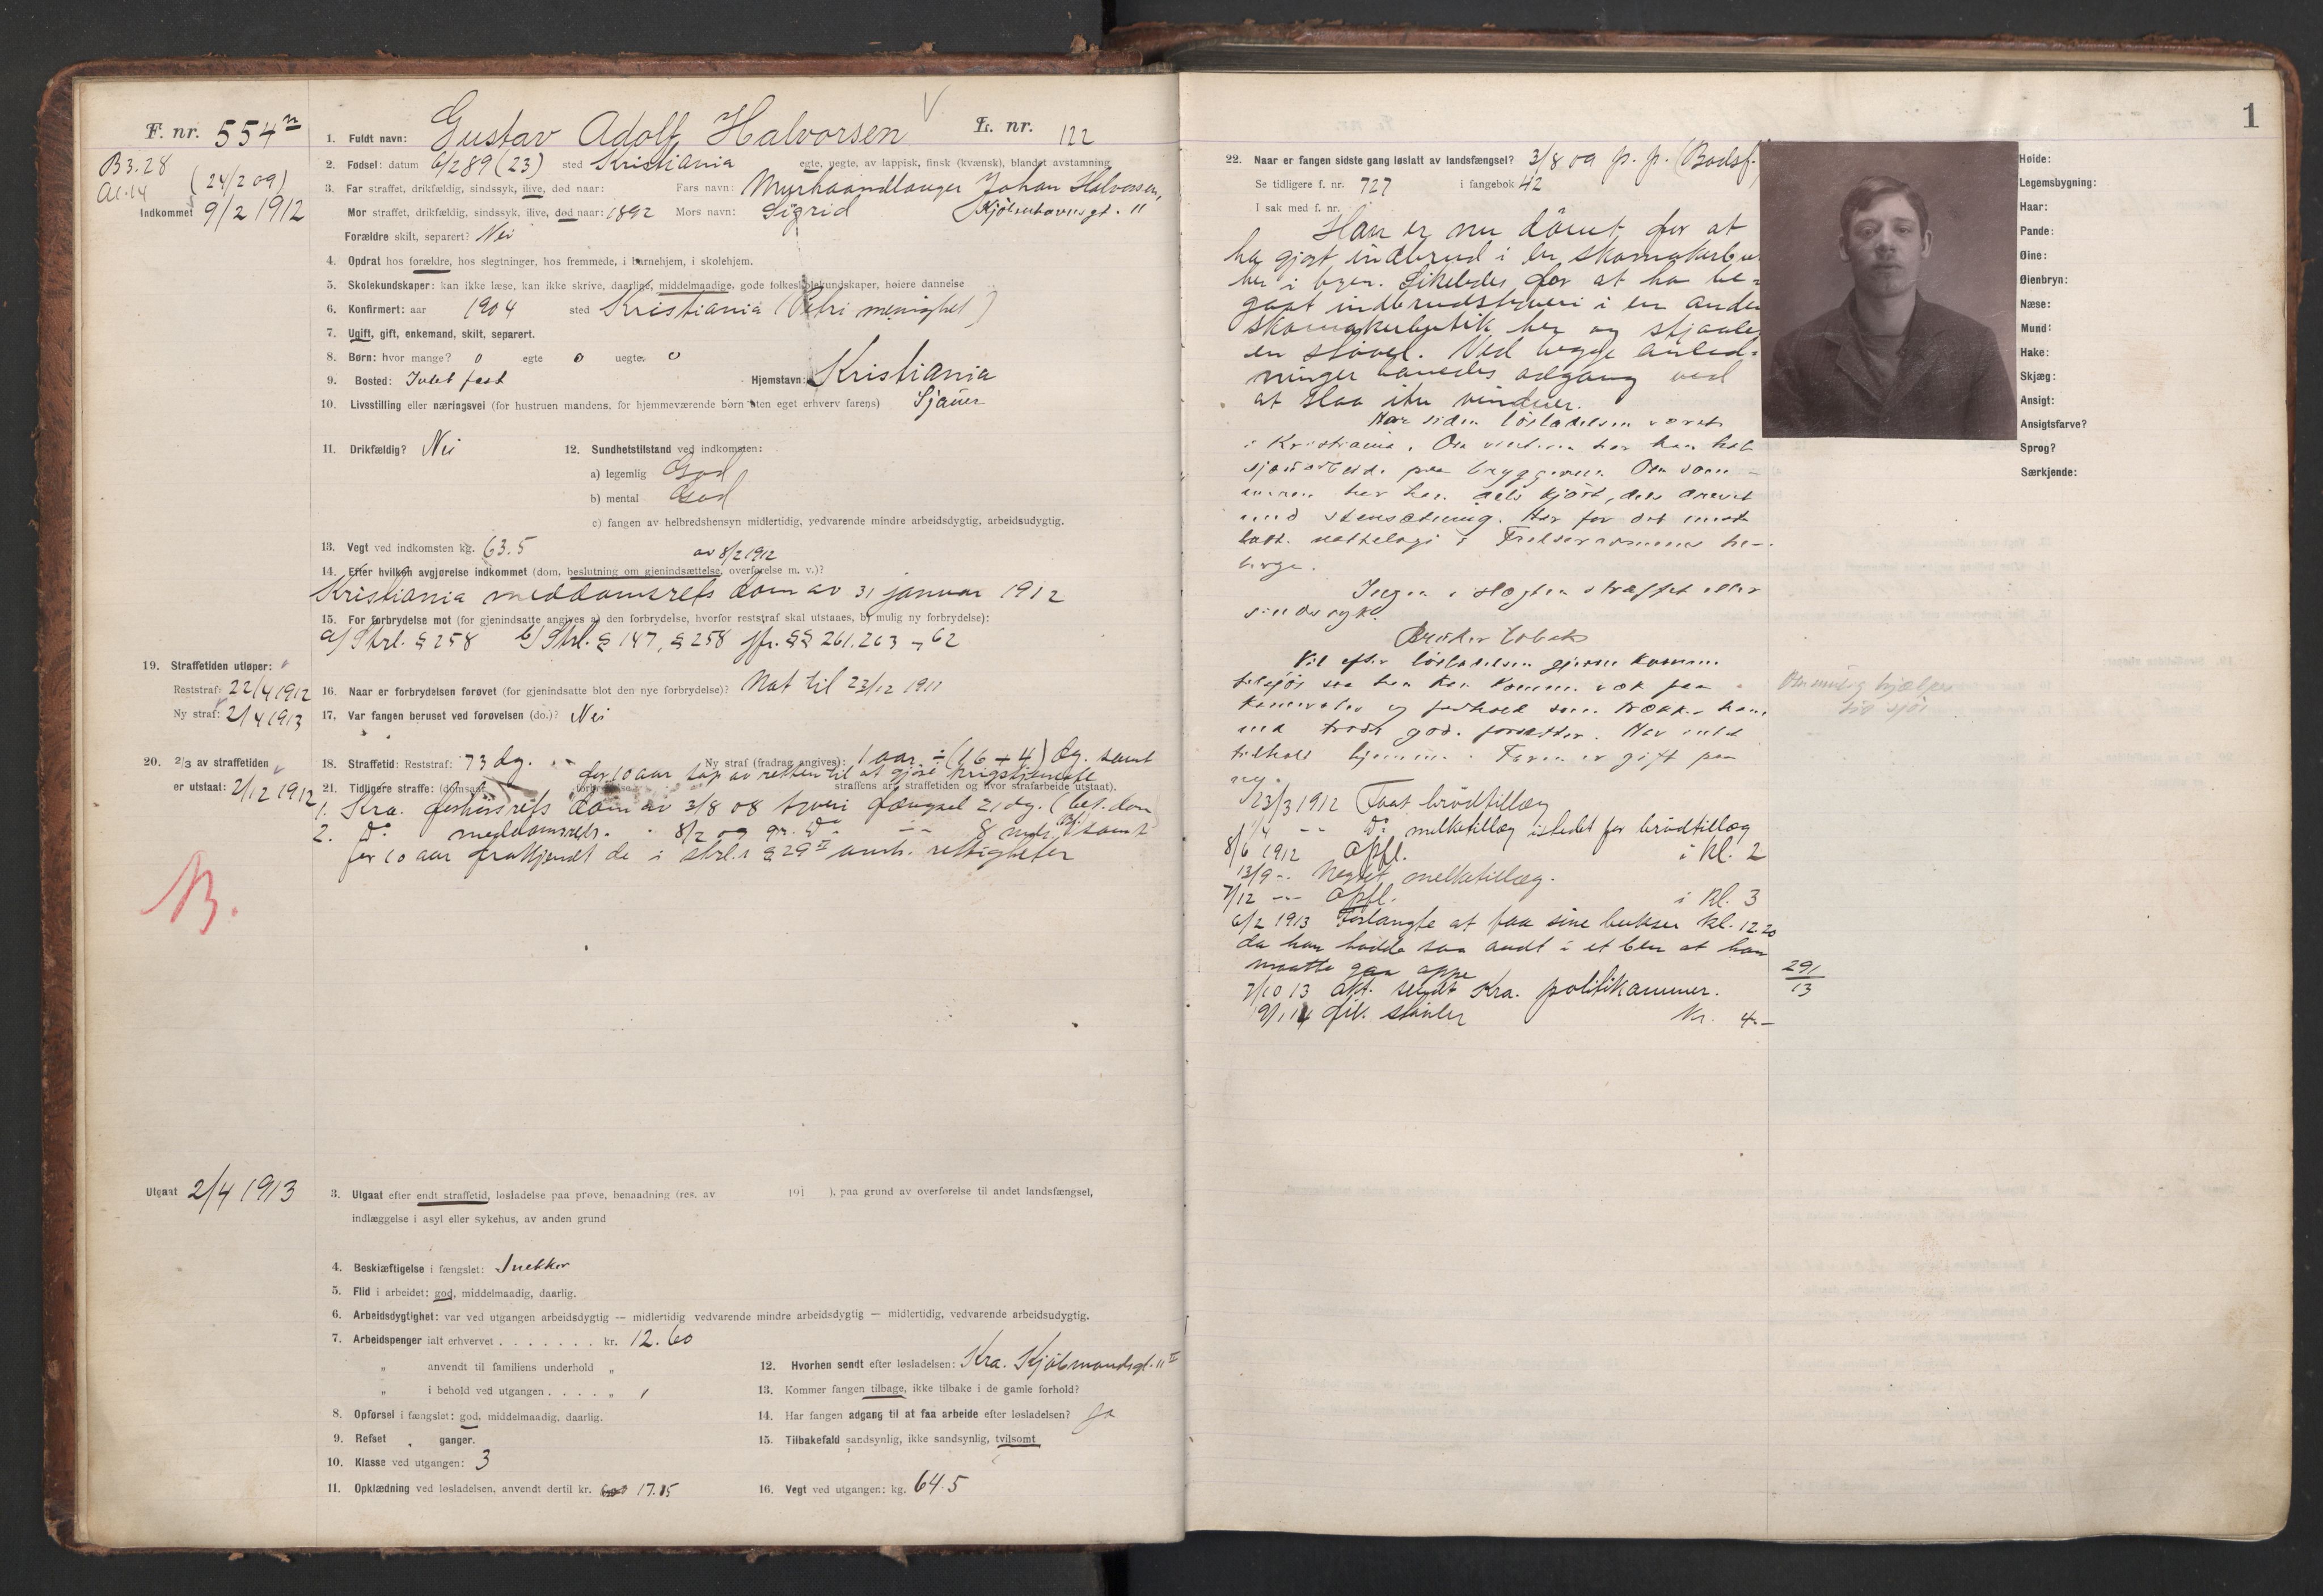 F. nr. 554
B 3.28
(24/2 09)
Indkommet 9/2 1912
1. Fuldt navn: Gustav Adolf Halvorsen
L. nr. 122
2. Fødsel: datum 6/2 89 (23) sted Kristiania egte, uegte, av lappisk, finsk (kvænsk), blandet avstamning
3. Far straffet, drikfældig, sindssyk, ilive, død naar: Fars navn: Murhaandlanger Johan Halvorsen,
Mor straffet, drikfældig, sindssyk, ilive, død naar: 1892 Mors navn: Sigrid
Forældre skilt, separert? Nei
4. Opdrat hos forældre, hos slegtninger, hos fremmede, i barnehjem, i skolehjem.
5. Skolekundskaper: kan ikke læse, kan ikke skrive, daarlige, middelmaadige, gode folkeskolekundskaper, høiere dannelse
6. Konfirmert: aar 1904 sted Kristiania (Petri menighet)
7. Ugift, gift, enkemand, skilt, separert.
8. Børn: hvor mange? 0 egte 0 uegte 0
9. Bosted: Intet fast Hjemstavn: Kristiania
10. Livsstilling eller næringsvei (for hustruen mandens, for hjemmeværende børn uten eget erhverv farens) Sjauer
11. Drikfældig? Nei
12. Sundhetstilstand ved indkomsten:
a) legemlig God
b) mental God
c) fangen av helbredshensyn midlertidig, vedvarende mindre arbeidsdygtig, arbeidsudygtig.
13. Vegt ved indkomsten kg. 63.5
av 8/2 1912
14. Efter hvilken avgjørelse indkommet (dom, beslutning om gjenindsættelse, overførelse m. v.)?
Kristiania meddomsrets dom av 31 januar 1912
15. For forbrydelse mot (for gjenindsatte angives a) den forbrydelse, hvorfor reststraf skal utstaaes, b) mulig ny forbrydelse):
a) Strl. § 258 b) Strl. § 147, § 258 jfr. §§ 261. 263 - 62
19. Straffetiden utløper:
Reststraf: 22/4 1912
16. Naar er forbrydelsen forøvet (for gjenindsatte blot den nye forbrydelse)? Nat til 23/12 1911
Ny straf: 2/4 1913
17. Var fangen beruset ved forøvelsen (do.)? Nei
20. 2/3 av straffetiden
er utstaat: 2/12 1912
18. Straffetid: Reststraf: 73 dg. Ny straf (fradrag angives): 1 aar ÷ (16 + 4) dg. samt
for 10 aar tap av retten til at gjøre krigstjeneste
21. Tidligere straffe: straffens art, straffetiden og hvor strafarbeide utstaat).
1. Kra. forhørsrets dom av 3/8 08 tyveri fængsel 21 dg. (bet. dom)
2. Do meddomsrets 8/2 09 gr. Do 8 mdr. samt
for 10 aar frakjendt de i strl.s § 29 II omh. rettigheter
B.
Utgaat 2/4 1913
3. Utgaat efter endt straffetid, løsladelse paa prøve, benaadning (res. av 191 ), paa grund av overførelse til andet landsfængsel,
indlæggelse i asyl eller sykehus, av anden grund
4. Beskjæftigelse i fængslet: Snekker
5. Flid i arbeidet: god, middelmaadig, daarlig.
6. Arbeidsdygtighet: var ved utgangen arbeidsdygtig — midlertidig vedvarende mindre arbeidsdygtig — midlertidig, vedvarende arbeidsudygtig.
7. Arbeidspenger ialt erhvervet . . . . . . . kr. 12.60
„ anvendt til familiens underhold „
„ i behold ved utgangen . . . . „
8. Opførsel i fængslet: god, middelmaadig, daarlig.
9. Refset ganger.
10. Klasse ved utgangen: 3
11. Opklædning ved løsladelsen, anvendt dertil kr. 17.15
12. Hvorhen sendt efter løsladelsen: Kra. Kjølbmandsgt. 11
13. Kommer fangen tilbage, ikke tilbake i de gamle forhold?
14. Har fangen adgang til at faa arbeide efter løsladelsen? ja
15. Tilbakefald sandsynlig, ikke sandsynlig, tvilsomt
16. Vegt ved utgangen: kg. 64.5
1
22. Naar er fangen sidste gang løslatt av landsfængsel? 3/8 09 p. p. (Bodsf.
Se tidligere f. nr. 727 i fangebok 42
I sak med f. nr.
Han er nu dømt for at
ha gjort indbrud i en skomakerbu
her i byen. Likeledes for at ha be-
gaat indbrudstyveri i en anden
skomakerbutik her og stjaalet
en støvel. Ved begge anled-
ninger banedes adgang ved
at slaa itu vinduer.
Har siden løsladelsen været
i Kristiania. Om vinteren har han hat
sjauarbeide paa bryggerne. Om som-
meren har han dels kjørt, dels drevet
med stensætning. Har for det meste
hatt natteloge i Frelserarmeens her-
berge.
Ingen i slegten straffet eller
sindssyk.
Bruker tobak
Vil efter løsladelsen gjerne komme
tilsjøs saa han kan komme væk fra
kamerater og forhold som trækker ham
ned trods gode forsætter. Har intet
tilhold hjemme. Faren er gift paa
ny.
23/3 1912 Faat brødtillæg
1/4 -- Do melketillæg istedet for brødtillæg
8/6 1912 Opfl. i kl. 2
13/9 -- Negtet melketillæg.
7/12 -- Opfl. i kl. 3
6/2 1913 Forlangte at faa sine bukser kl. 12.20
da han hadde saa ondt i et ben at han
maatte gaa oppe
7/10 13 Akt. sendt Kra. politikammer. 291/13
9/1 14 støvler Kr. 4.-
hjælpes
til sjøs
Høide:
Legemsbygning:
Haar:
Pande:
Øine:
Øienbryn:
Næse:
Mund:
Hake:
Skjæg:
Ansigt:
Ansigtsfarve?
Sprog?
Særkjende: